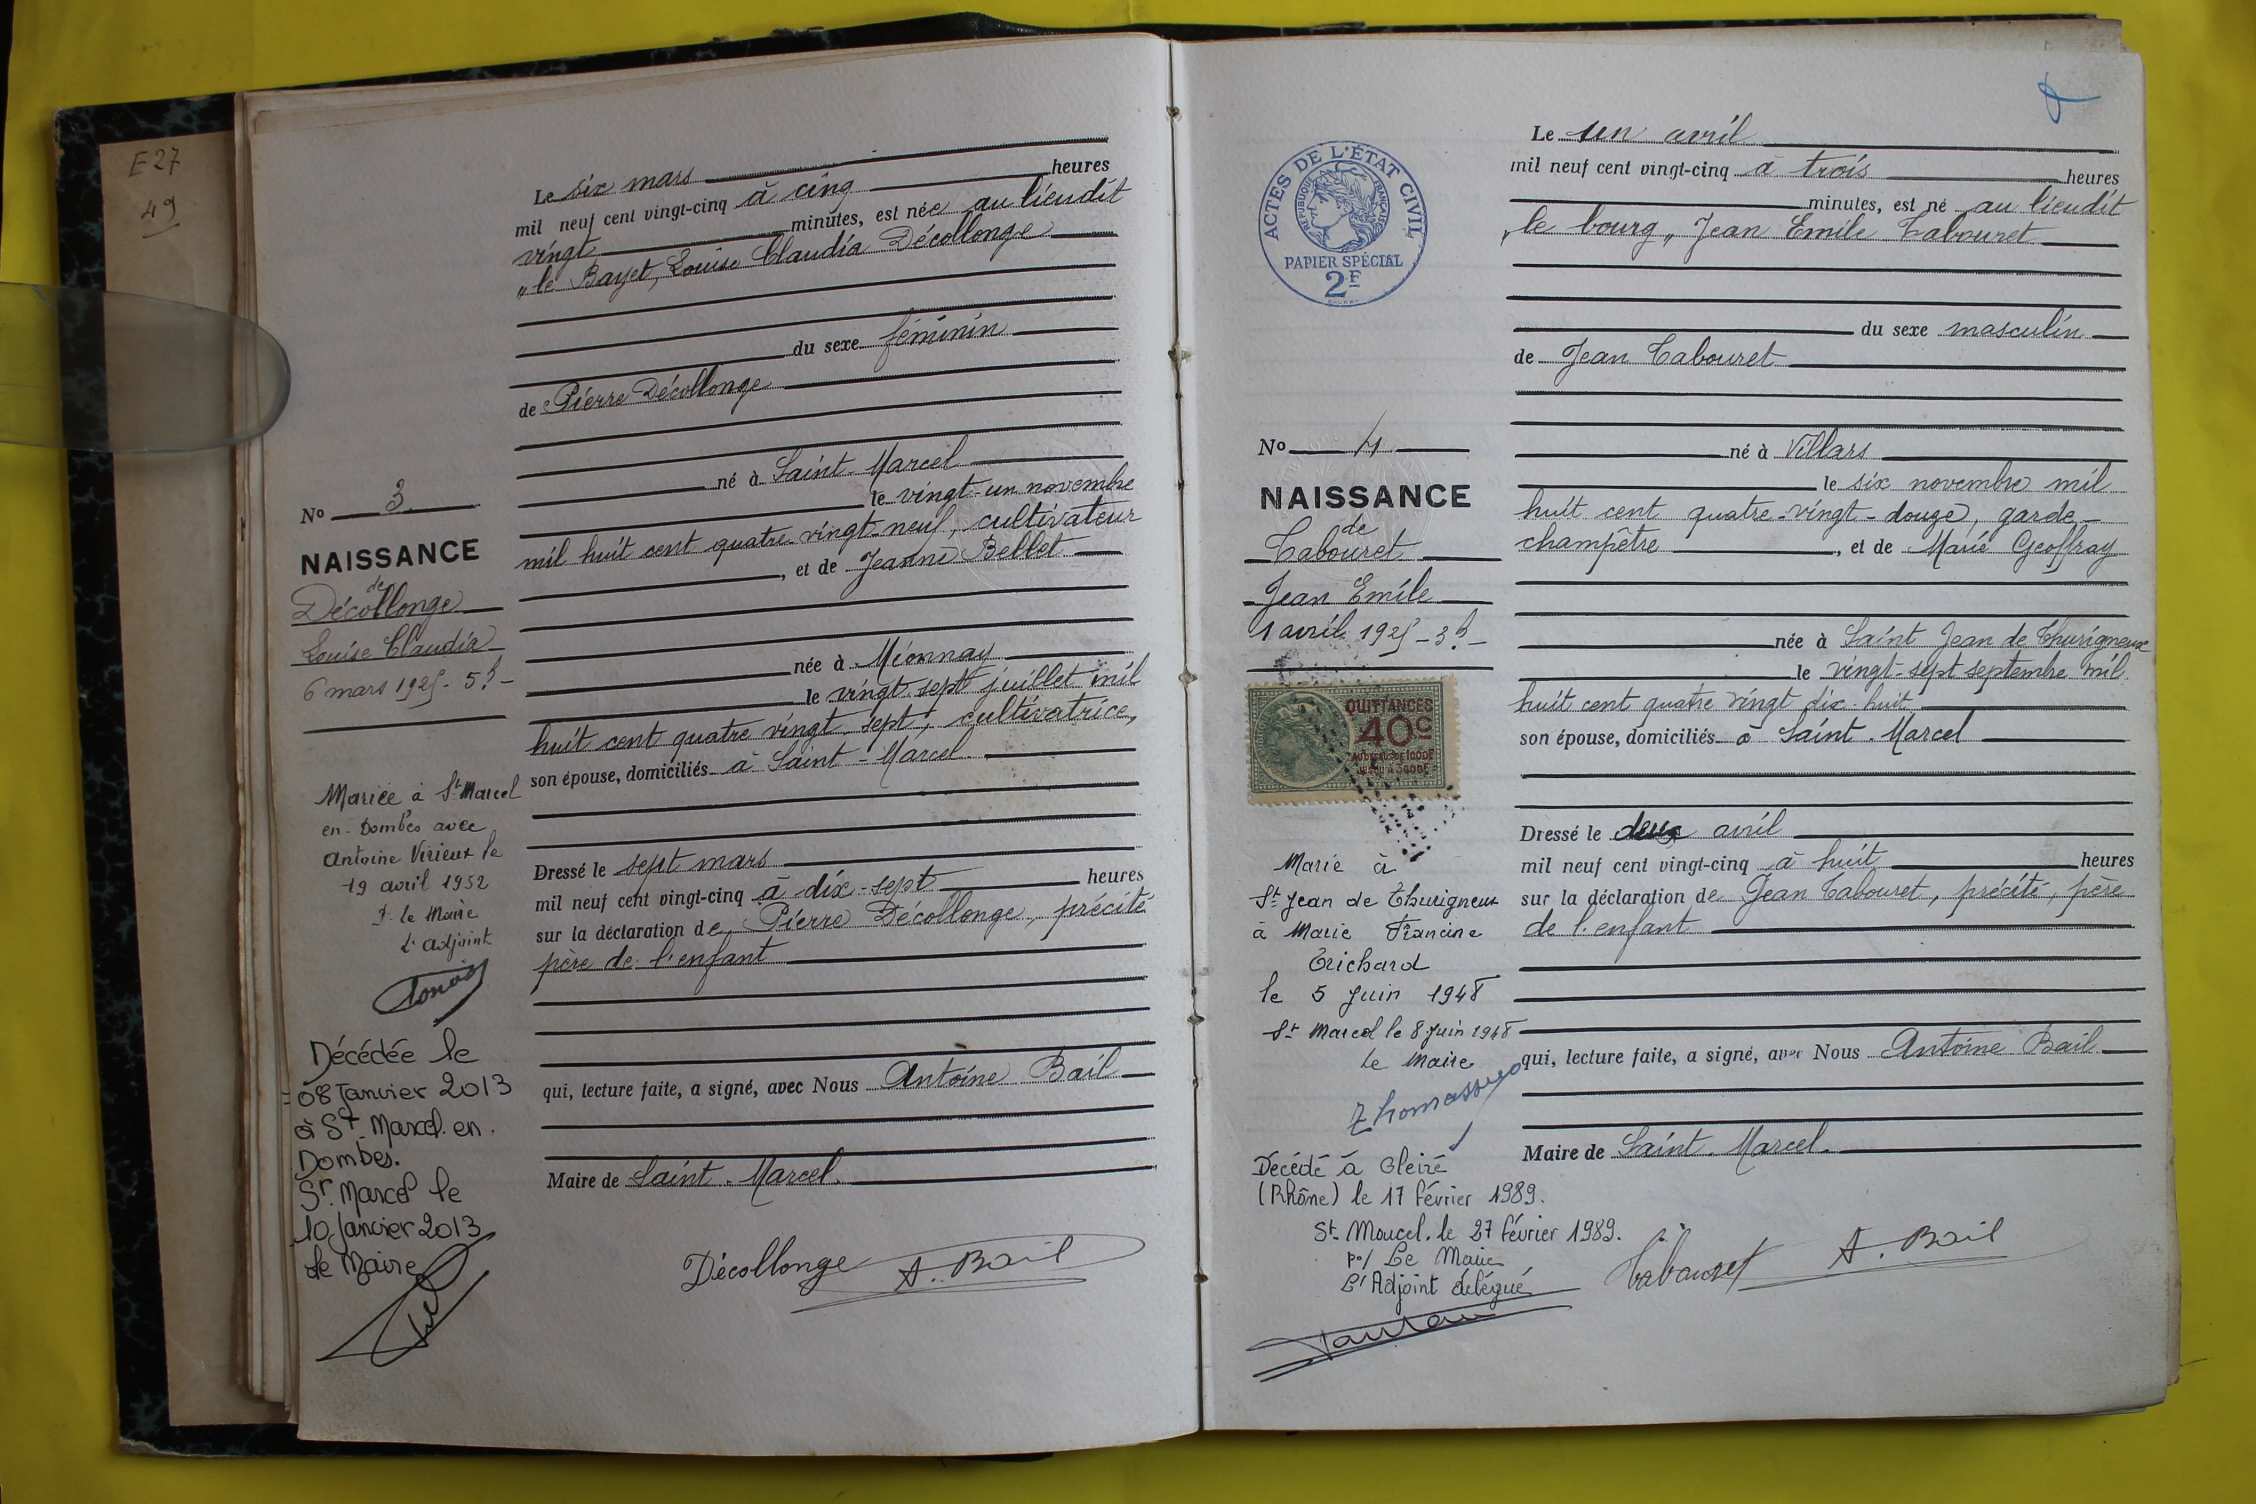 E 27
49
Le six mars
mil neuf cent vingt-cinq à cinq heures
vingt minutes, est née au lieudit
„le Bayet, Louise Claudia Décollonge
du sexe féminin
de Pierre Décollonge
né à Saint-Marcel
le vingt-un novembre
mil huit cent quatre-vingt-neuf, cultivateur
, et de Jeanne Bellet
née à Mionnay
le vingt-sept juillet mil
huit cent quatre vingt-sept, cultivatrice,
son épouse, domiciliés à Saint-Marcel.
Dressé le sept mars
mil neuf cent vingt-cinq à dix-sept heures
sur la déclaration de Pierre Décollonge, précité
père de l'enfant
qui, lecture faite, a signé, avec Nous Antoine Bail
Maire de Saint-Marcel.
Décollonge A. Bail
No 3
NAISSANCE
de
Décollonge
Louise Claudia
6 mars 1925 - 5h -
Mariée à St Marcel
en-Dombes avec
Antoine Virieux le
19 avril 1952
P. le Maire
L'adjoint
Décédée le
08 Janvier 2013
à St Marcel en
Dombes.
St Marcel le
10 Janvier 2013
le Maire
Le un avril
mil neuf cent vingt-cinq à trois heures
minutes, est né au lieudit
„le bourg„ Jean Emile Tabouret
du sexe masculin
de Jean Tabouret
né à Villars
le six novembre mil
huit cent quatre-vingt-douze, garde-
champêtre , et de Marie Geoffray
née à Saint Jean de Thurigneux
le vingt-sept septembre mil
huit cent quatre vingt dix-huit
son épouse, domiciliés à Saint-Marcel
Dressé le deux avril
mil neuf cent vingt-cinq à huit heures
sur la déclaration de Jean Tabouret, précité, père
de l'enfant
qui, lecture faite, a signé, avec Nous Antoine Bail
Maire de Saint-Marcel.
Tabouret A. Bail
ACTES DE L'ÉTAT CIVIL
RÉPUBLIQUE FRANÇAISE
PAPIER SPÉCIAL
2F
No 4
NAISSANCE
de
Tabouret
Jean Emile
1 avril 1925 - 3h -
QUITTANCES
40c
AU DESSUS DE 1000F
JUSQU'À 3000F
Marié à
St Jean de Thurigneux
à Marie Francine
Trichard
le 5 Juin 1948
St Marcel le 8 Juin 1948
Le Maire
Décédé à Gleizé
(Rhône) le 17 février 1989.
St Marcel, le 27 février 1989.
po/ Le Maire
L'Adjoint délégué